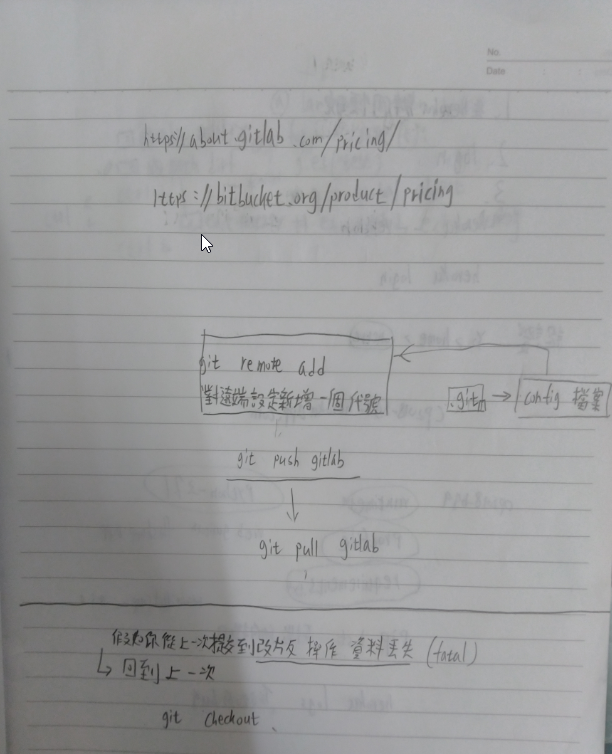 No.
Date
https://about.gitlab.com/pricing/
https://bitbucket.org/product/pricing
git remote add
對遠端設定新增一個代號
.git → config 檔案
git push gitlab
git pull gitlab
你從上一次提交到 改片反 操作 資料丟失 (fatal)
回到上一次
git checkout